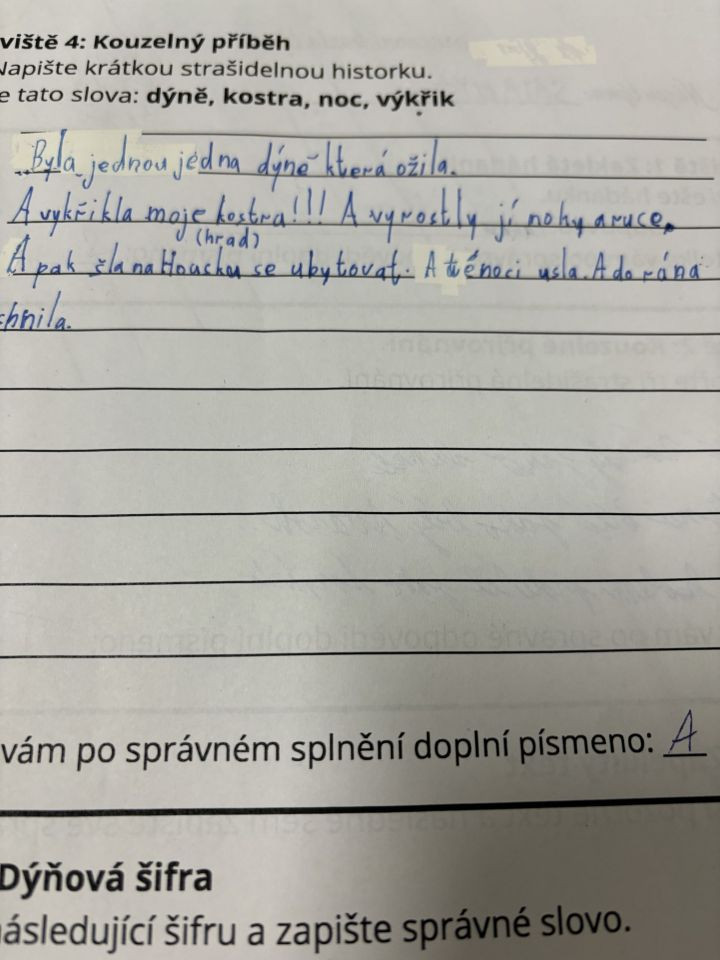 viště 4: Kouzelný příběh
Napište krátkou strašidelnou historku.
e tato slova: dýně, kostra, noc, výkřik
Byla jednou jedna dýně která ožila.
A vykřikla moje kostra!!! A vyrostly jí nohy a ruce.
(hrad)
A pak šla na Housku se ubytovat. A té noci usla. A do rána
chnila.
vám po správném splnění doplní písmeno: A
Dýňová šifra
následující šifru a zapište správné slovo.